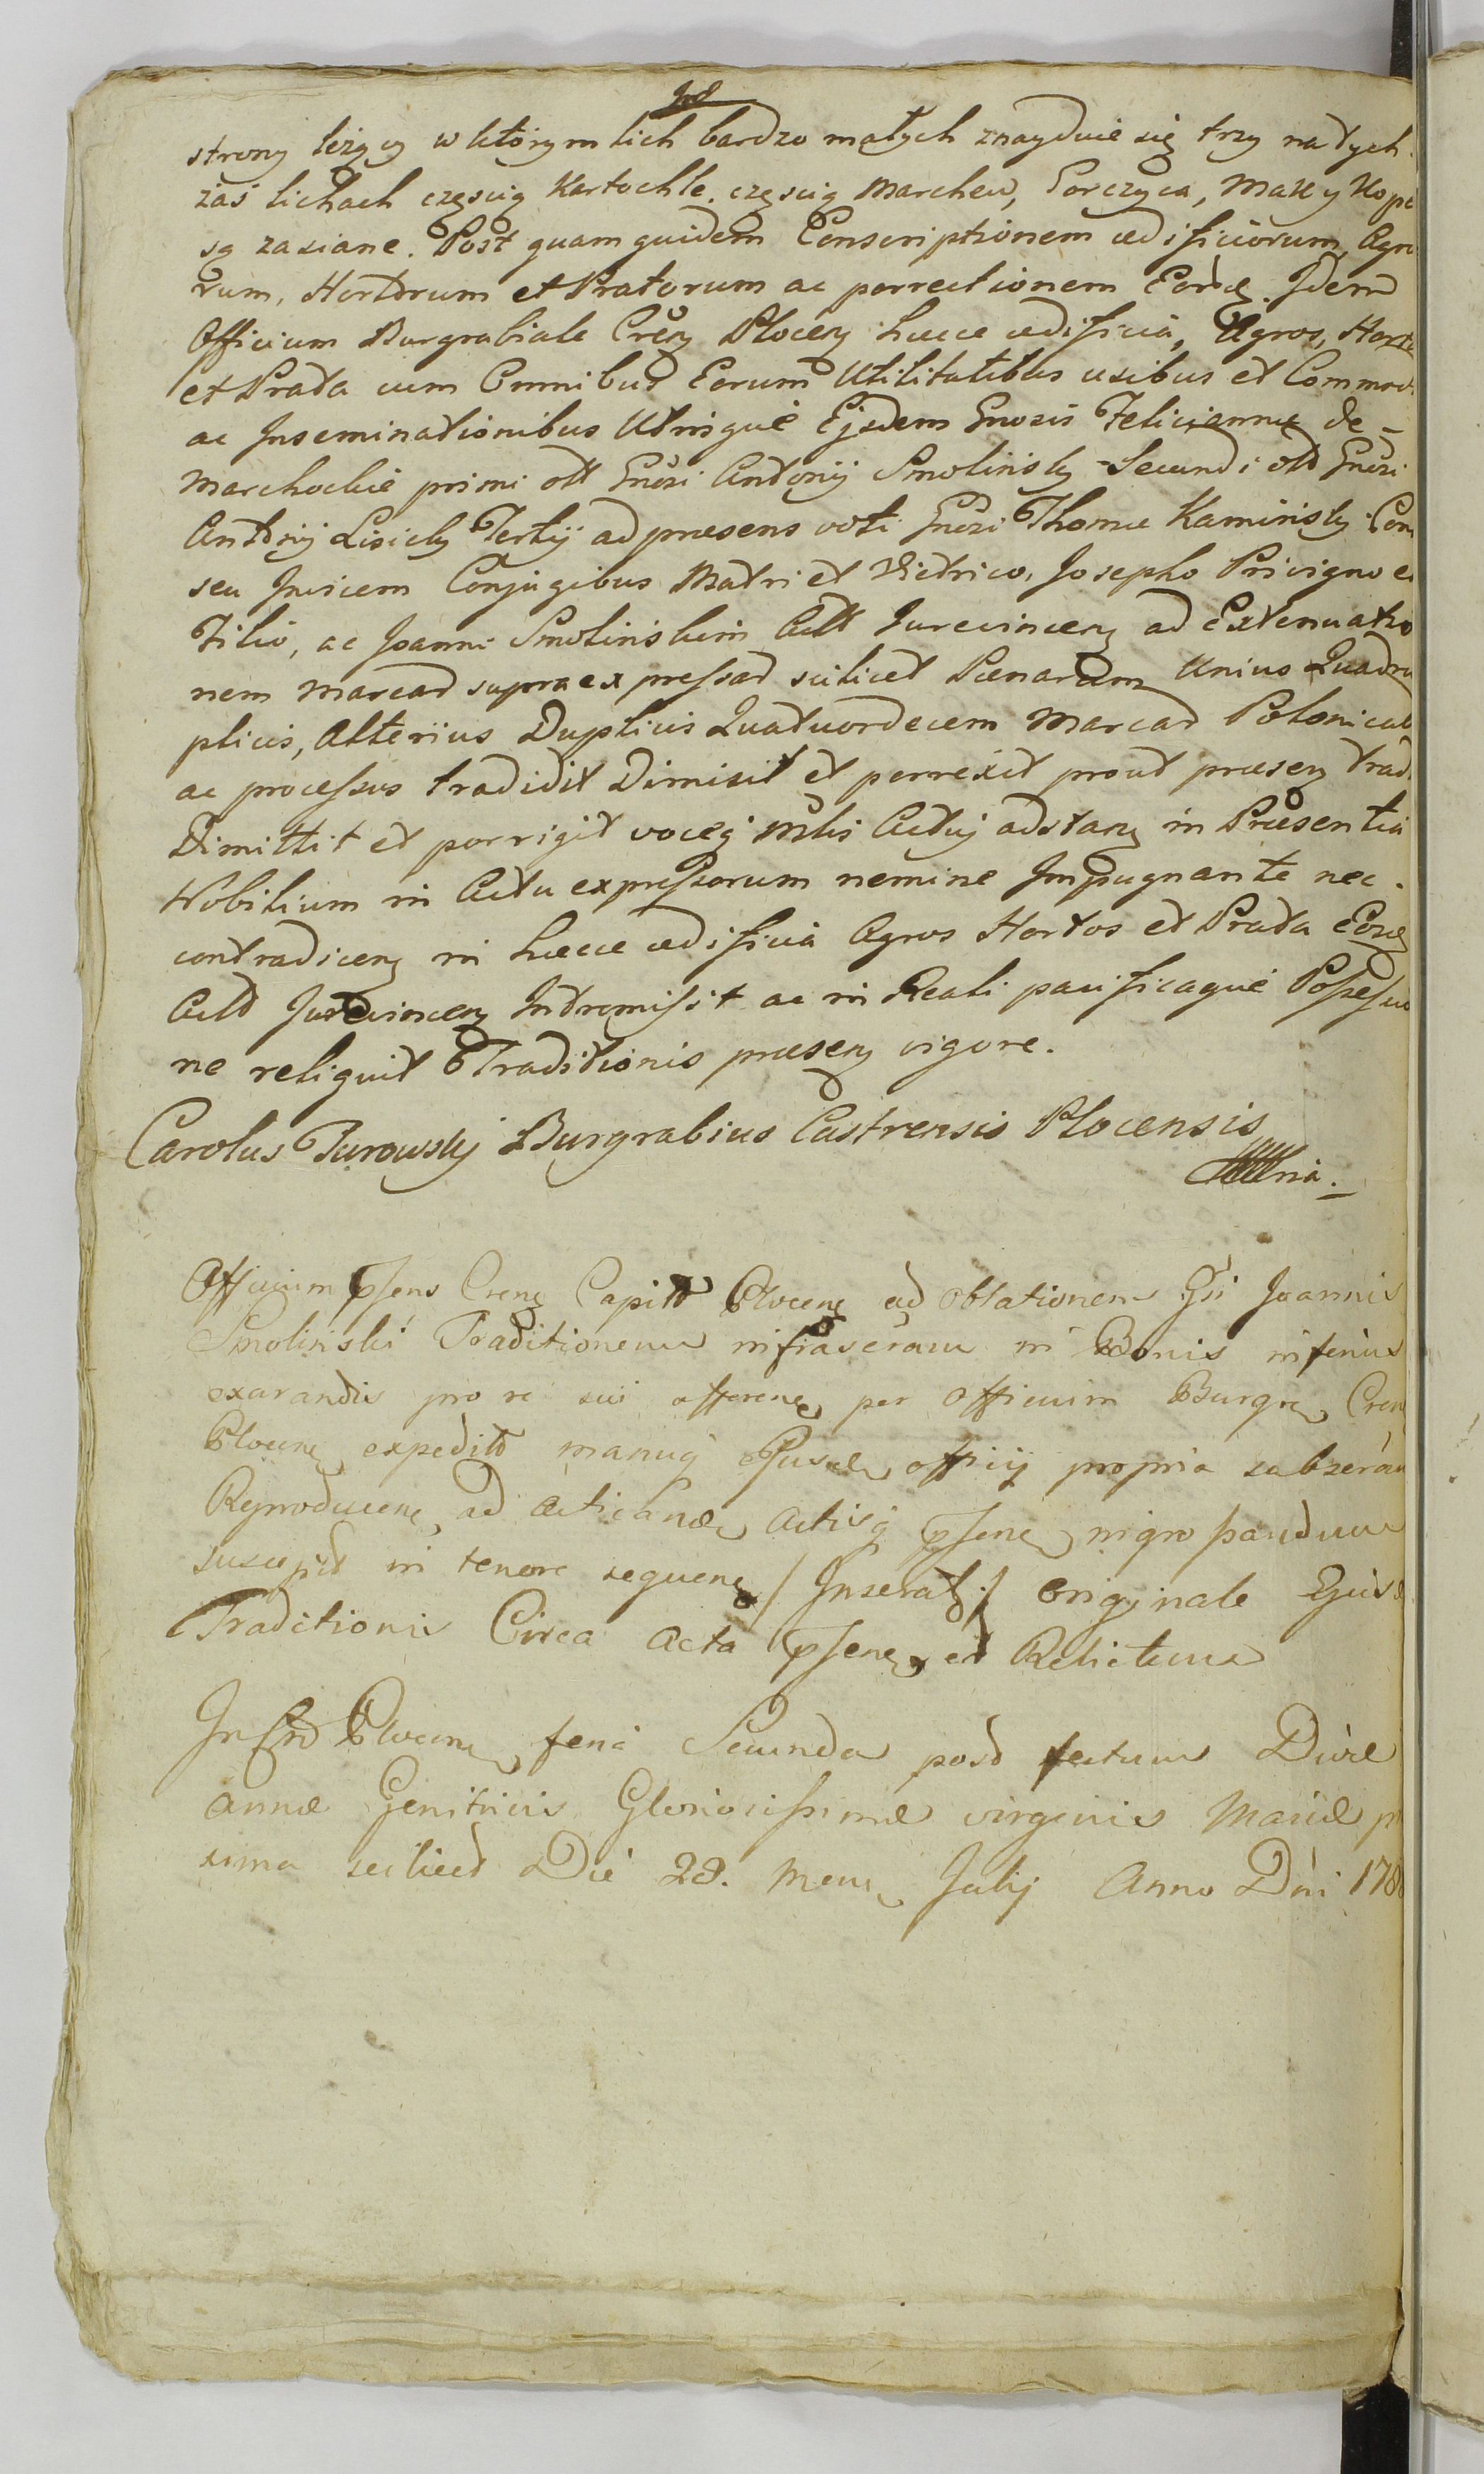 strony leżący w którym lich bardzo małych znayduie się trzy na tych
zaś lichach częścią Kartochle, częścią Marchew, Gorczyca, Mak y Kop
są zasiane. Post quam quidem Conscriptionem ædificiorum, Agro
rum, Hortorum et Pratorum ac porrectionem Eorдę Idem
Officium Burgrabiale Cren Plocen hæcce ædificia, Agros, Horto
et Prata cum Omnibus Eorum Utilitatibus usibus et Commod
ac Inseminationibus Utrisque Ejsdem Gnosis Felicianna de
Marchockie primi olt Gnosi Antonij Smolinsky Secundi olt Gnosi
Antonij Lisicky Tertij ad præsens voti Gnosi Thomæ Kaminisky Con
seu Invicem Conjugibus Matri et Vietrico, Josepho Privigno et
Filio, ac Joanni Smolinskim Actt Jurevincen ad Extenuatio
nem marcar supra expressar scilicet Pænarum Unius Quadru
plicis, Alterius Duplicis Quatuordecem Marcar Polonical
ac processus tradidit Dimisit et porrexit prout præsen trad
Dimittit et porrigit voceq Mlis Actuj adstan in Præsentia
Nobilium in Actu expressorum nemine Impugnante nec
contradicen in hæcce ædificia Agros Hortos et Prata Eor
Actt Jurevincen Intromisit ac in Reali pacificaque Possessio
ne reliquit Traditionis præsen vigore.
Carolus Turowsky Burgrabius Castrensis Plocensis
Officium psens Crene Capitt Plocene ad oblationem Gsi Joannis
Smolinski Traditionem infrascram in Bonis inferius
exarandis pro re sui afferen per Officium Burgra Cren
Plocen expeditt manuq Ejusd officij propria subscram
Reproducen ad acticand Actisq psen ingrossandum
suscepit in tenore sequen / Inseratj / Originale Ejusd
Traditionis Circa Acta psen est Relictum
In Cro Plocen feria Secunda post festum Divæ
Annæ Genitricis Gloriosissimæ virginis Mariæ p
xima scilicet Die 28. Mens Julij Anno Dni 178